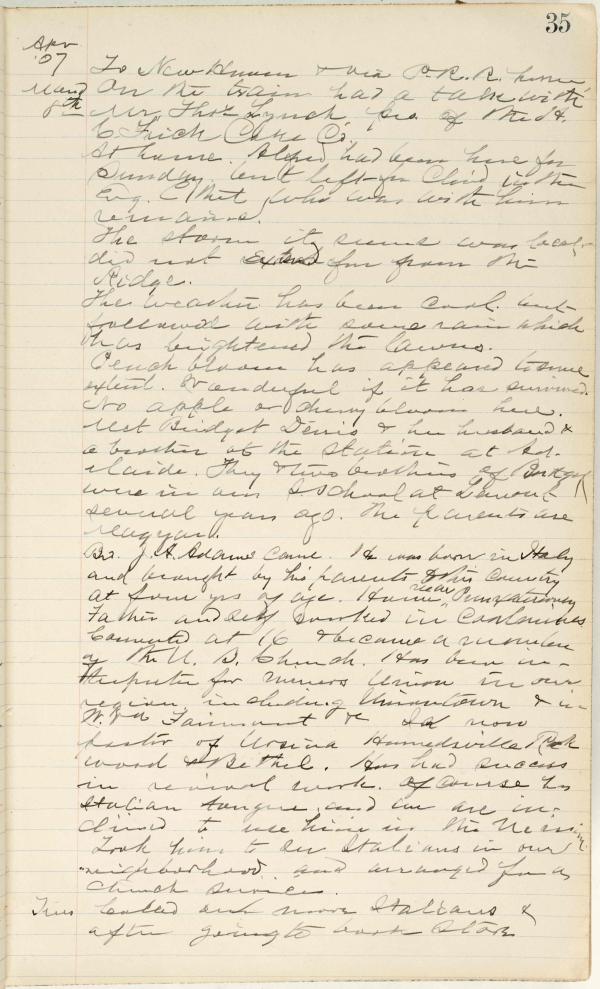 35
Apr
'07
To New Haven & via P.R.R. home
Mond
8th
On the train had a talk with
Mr. Thos Lynch, Pres of the H.
C. Frick Coke Co.
At home. Alfred had been here for
Sunday but left for in the
Eve. Ethel, who was with him
remains.
The storm it seems was local
did not extend far from the
Ridge.
The weather has been cool but
followed with some rain which
has brightened the lawns.
Peach bloom has appeared to some
extent. Wonderful if it has survived.
No apple or cherry bloom here.
Met Bridget Denis & her husband &
a brother at the station at Ad-
elaide. They & two brothers of Bridget
were in our S school at
several years ago. The parents are
Magyar.
Bro. J. H. Adams came. He was born in Italy
and brought by his parents to this country
at four yrs of age. Home near Punxsutawney
Father and self worked in coal mines
Converted at 16 & became a member
of the U. B. Church. Has been in-
terpreter for miners Union in our
region, including Uniontown & in
W. Va Fairmont &c Is now
pastor of Ursina Harnedsville Rock
wood & Bethel. Has had success
in revival work. Of course has
Italian tongue and we are in-
clined to use him in the Mission
Took him to see Italians in our
neighborhood and arranged for a
church service.
Tues
Called on more Italians &
after going to book store